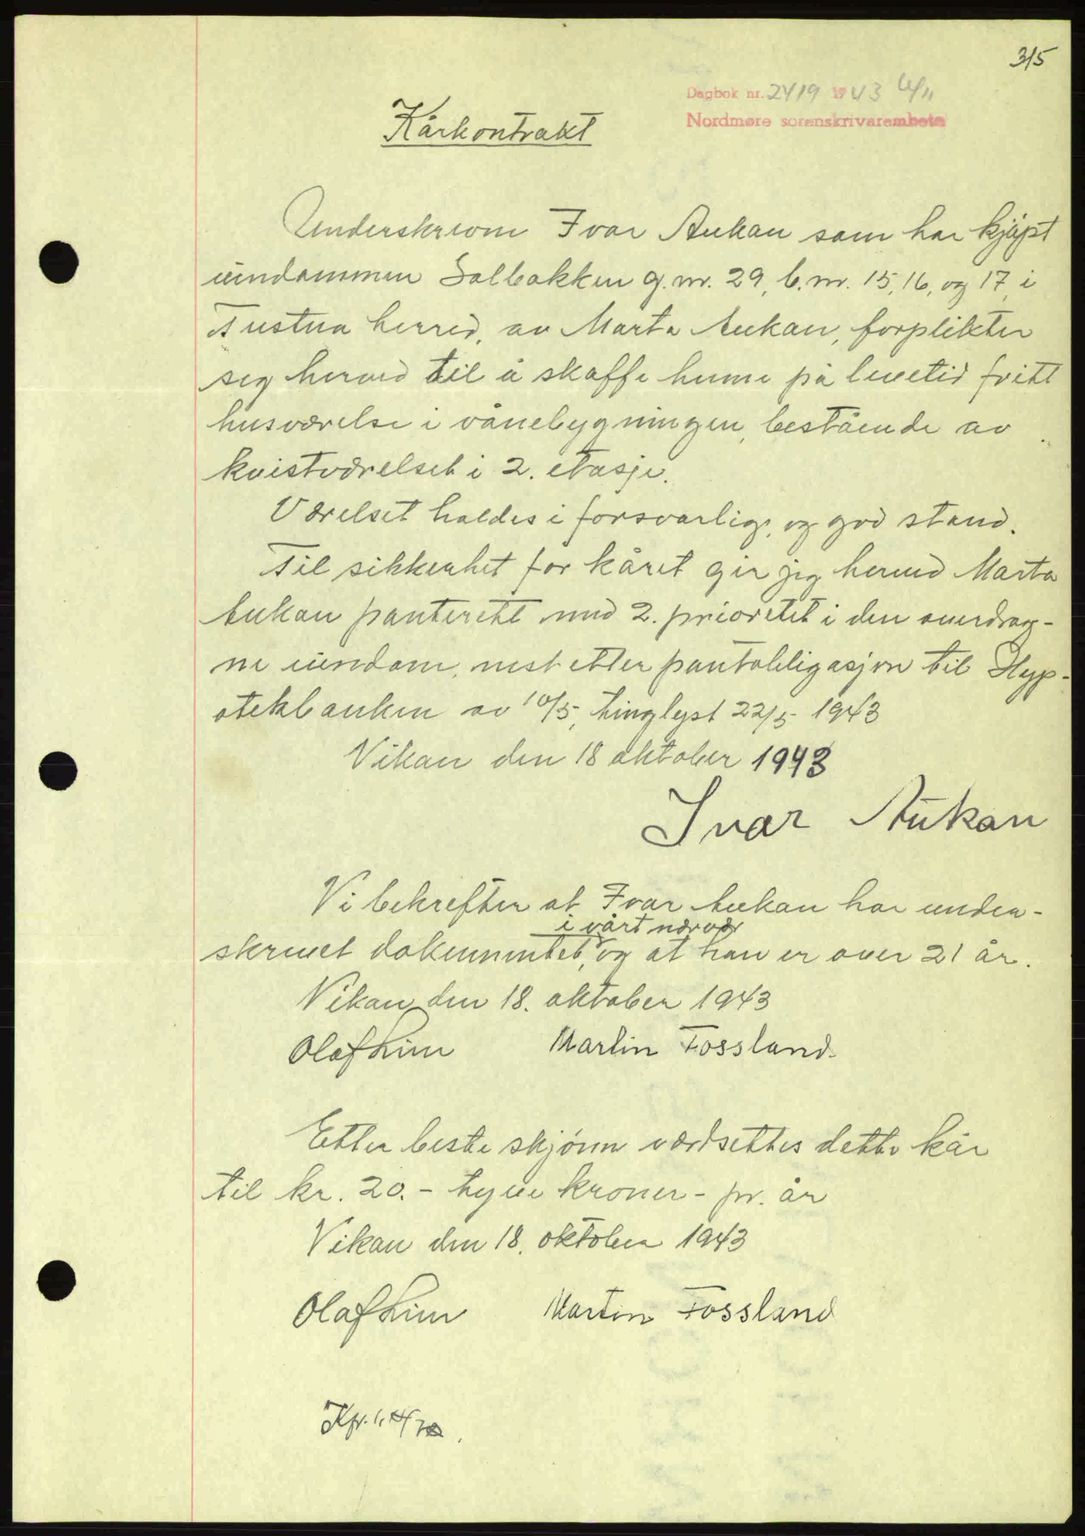 315
Dagbok nr. 2419 1943 4/11
Nordmøre sorenskrivarembete
Kårkontrakt
Underskrevne Ivar Aukan som har kjøpt
eiendommen Solbakken g.nr. 29, b.nr. 15, 16, og 17, i
Tustna herred, av Marta Aukan, forplikter
seg herved til å skaffe henne på levetid fritt
husværelse i vånebygningen, bestående av
kvistværelset i 2. etasje.
Værelset holdes i forsvarlig, og god stand.
Til sikkerhet for kåret gir jeg herved Marta
Aukan panterett med 2. prioritet i den overdrag-
ne eiendom, nest etter pantobligasjon til Hyp-
otekbanken av 10/5, tinglyst 22/5 1943
Vikan den 18 oktober 1943
Ivar Aukan
Vi bekrefter at Ivar Aukan har under-
i vårt nærvær
skrevet dokumentet, og at han er over 21 år.
Vikan den 18. oktober 1943
Olaf Lim Martin Fossland
Etter beste skjønn verdsettes dette kår
til kr. 20.- tyve kroner - pr. år
Vikan den 18. oktober 1943
Olaf Lim Martin Fossland